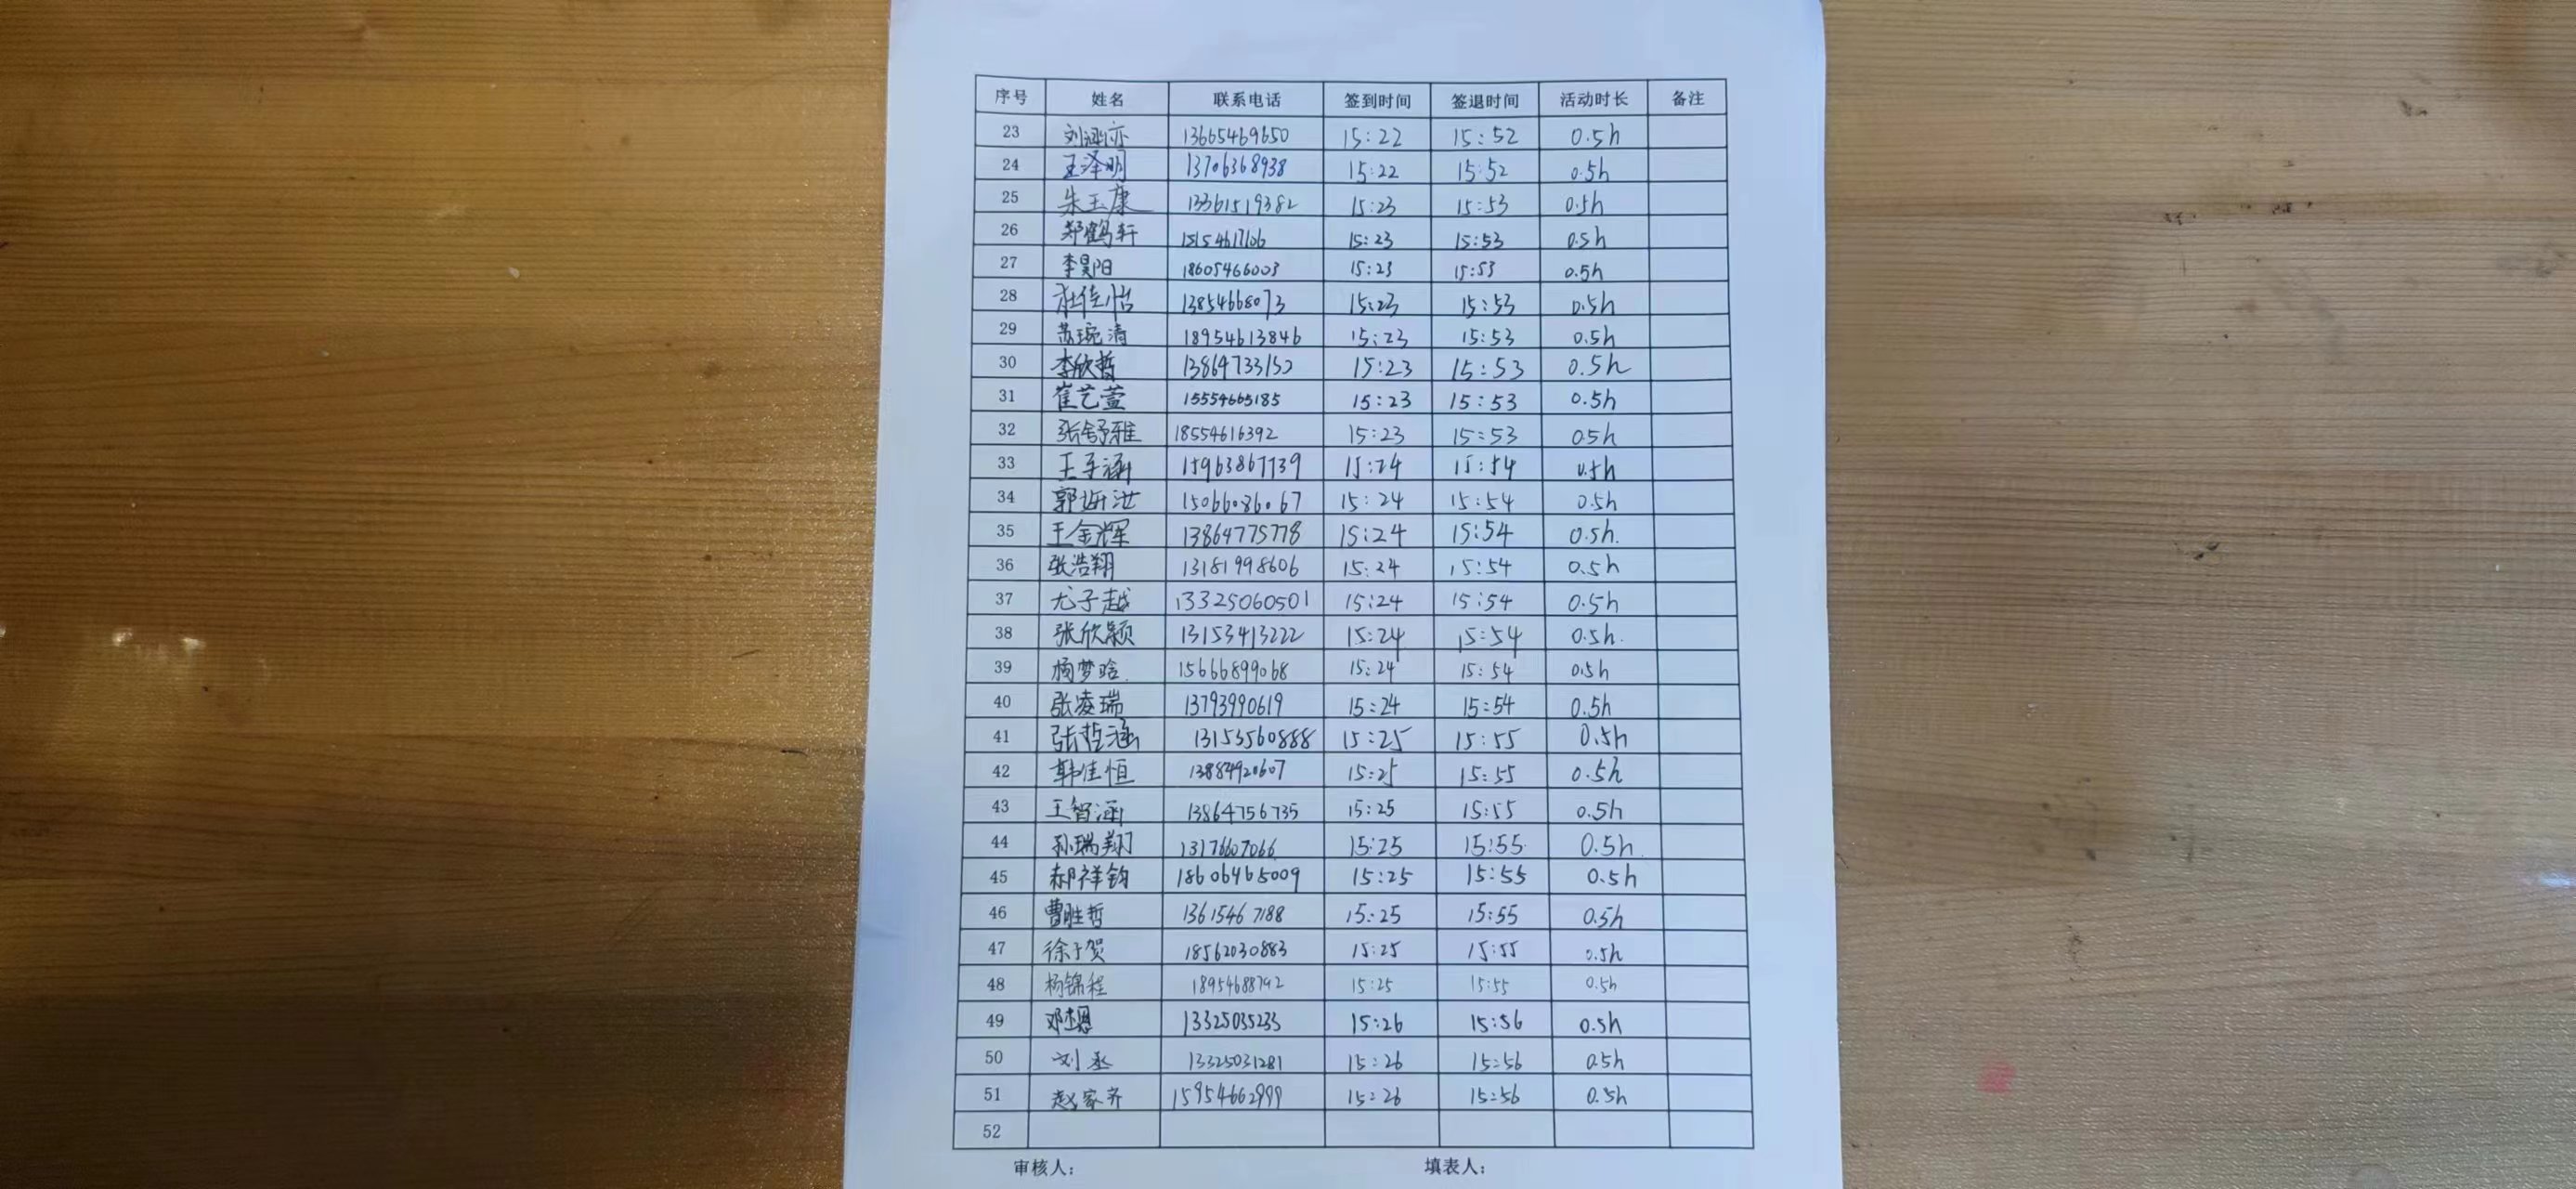 序号 姓名 联系电话 签到时间 签退时间 活动时长 备注
23 刘涵亦 13665469650 15:22 15:52 0.5h
24 王泽明 13706368938 15:22 15:52 0.5h
25 朱玉康 13361519382 15:23 15:53 0.5h
26 郑鹤轩 15154617106 15:23 15:53 0.5h
27 李昊阳 18605466003 15:23 15:53 0.5h
28 杜佳怡 13854668073 15:23 15:53 0.5h
29 苏琬清 18954613846 15:23 15:53 0.5h
30 李欣哲 13864733152 15:23 15:53 0.5h
31 崔艺萱 15554665185 15:23 15:53 0.5h
32 张舒雅 18554616392 15:23 15:53 0.5h
33 王子涵 15963867739 15:24 15:54 0.5h
34 15066086067 15:24 15:54 0.5h
35 王金辉 13864775778 15:24 15:54 0.5h.
36 张浩翔 13181998606 15:24 15:54 0.5h
37 尤子越 13325060501 15:24 15:54 0.5h
38 张欣颖 13153413222 15:24 15:54 0.5h.
39 杨梦晗 15666899068 15:24 15:54 0.5h
40 张凌瑞 13793990619 15:24 15:54 0.5h
41 张哲涵 13153560888 15:25 15:55 0.5h
42 韩佳恒 13884920607 15:25 15:55 0.5h
43 王智涵 13864756735 15:25 15:55 0.5h
44 孙瑞翔 13176607066 15:25 15:55 0.5h
45 郝祥钧 18606465009 15:25 15:55 0.5h
46 曹胜哲 13615467188 15:25 15:55 0.5h
47 徐于贺 18562030883 15:25 15:55 0.5h
48 杨锦程 18954688792 15:25 15:55 0.5h
49 13325035233 15:26 15:56 0.5h
50 刘丞 13325031281 15:26 15:56 0.5h
51 赵家齐 15954662999 15:26 15:56 0.5h
52
审核人: 填表人: